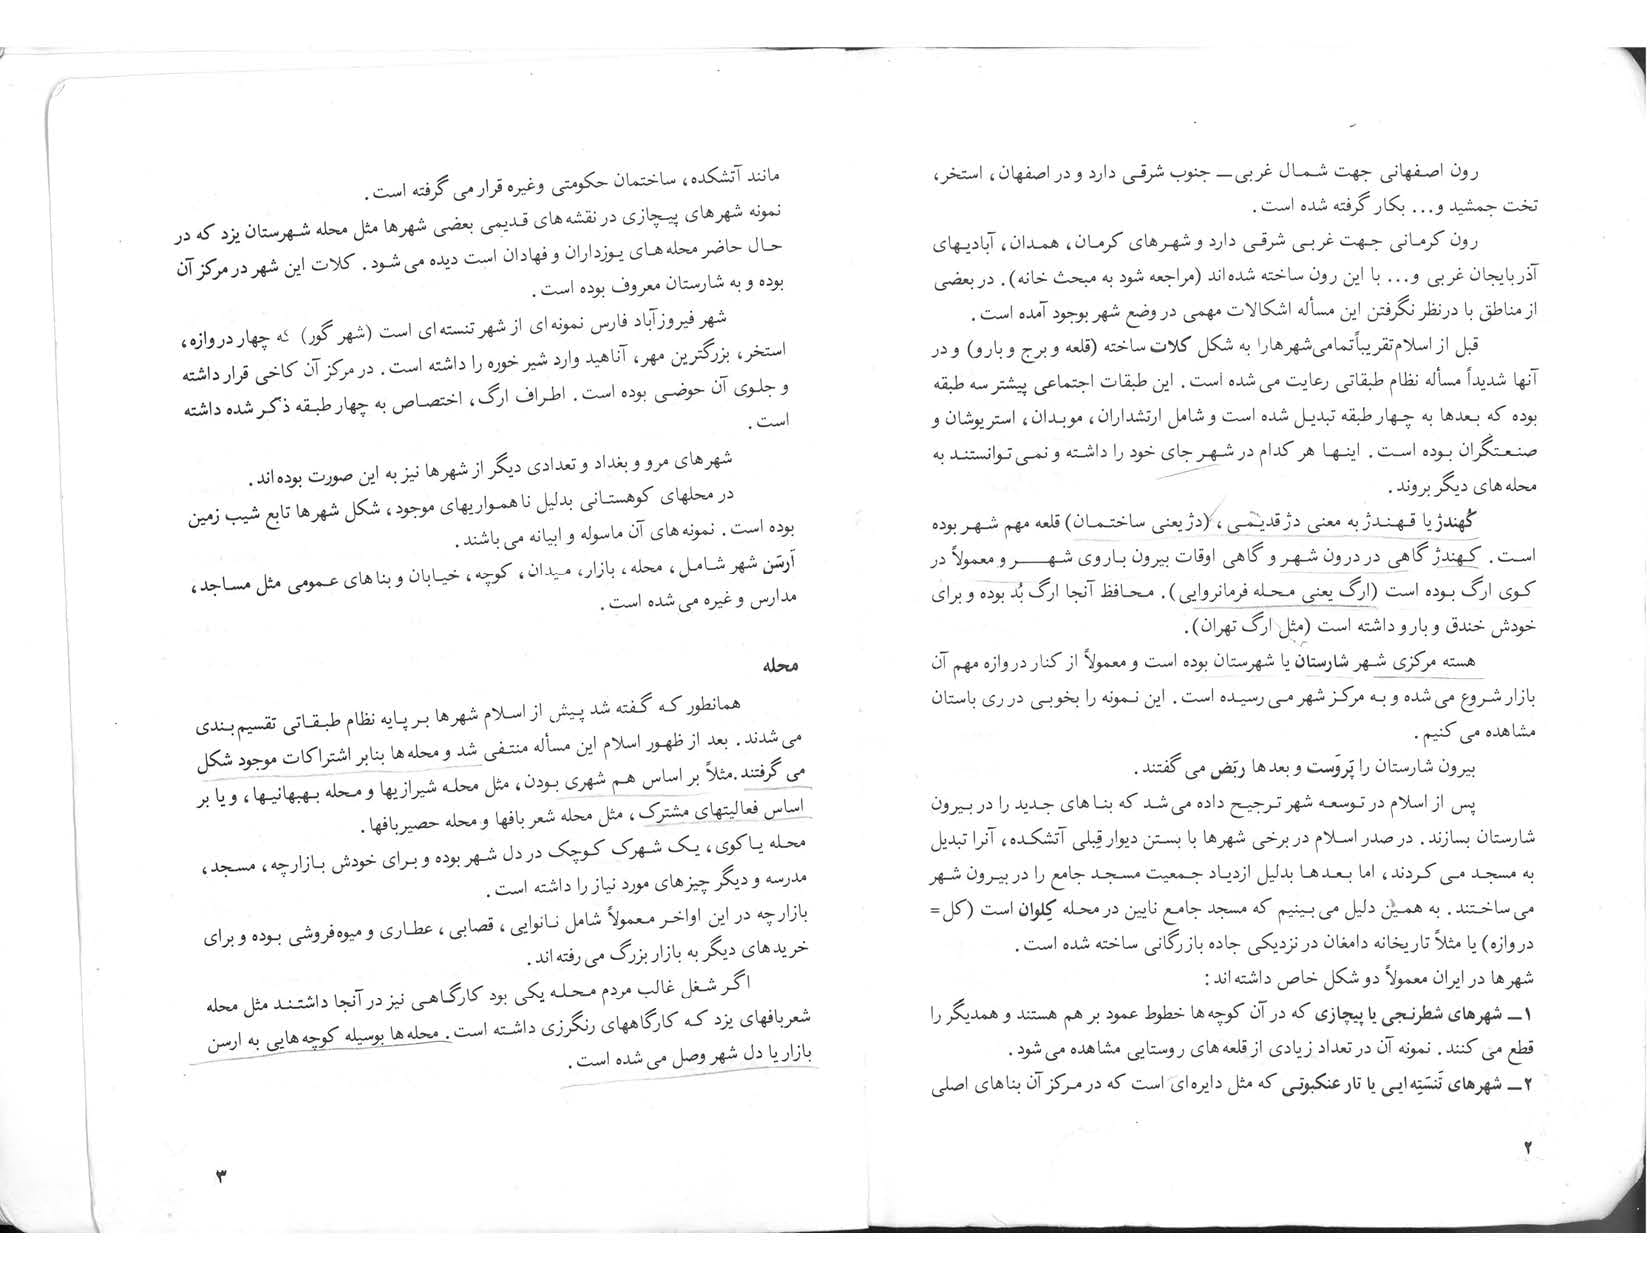 رون اصفهانی جهت شمال غربی — جنوب شرقی دارد و در اصفهان، استخر،
تخت جمشید و... بکار گرفته شده است.
رون کرمانی جهت غربی شرقی دارد و شهرهای کرمان، همدان، آبادیهای
آذربایجان غربی و... با این رون ساخته شده‌اند (مراجعه شود به مبحث خانه). در بعضی
از مناطق با درنظر نگرفتن این مسأله اشکالات مهمی در وضع شهر بوجود آمده است.
قبل از اسلام تقریباً تمامی شهرها را به شکل کلات ساخته (قلعه و برج و بارو) و در
آنها شدیداً مسأله نظام طبقاتی رعایت می شده است. این طبقات اجتماعی پیشتر سه طبقه
بوده که بعدها به چهار طبقه تبدیل شده است و شامل ارتشداران، موبدان، استریوشان و
صنعتگران بوده است. اینها هر کدام در شهر جای خود را داشته و نمی توانستند به
محله های دیگر بروند.
کُهندژ یا قهندژ به معنی دژ قدیمی، (دژ یعنی ساختمان) قلعه مهم شهر بوده
است. کهندژ گاهی در درون شهر و گاهی اوقات بیرون باروی شهر و معمولاً در
کوی ارگ بوده است (ارگ یعنی محله فرمانروایی). محافظ آنجا ارگ بُد بوده و برای
خودش خندق و بارو داشته است (مثل ارگ تهران).
هسته مرکزی شهر شارستان یا شهرستان بوده است و معمولاً از کنار دروازه مهم آن
بازار شروع می شده و به مرکز شهر می رسیده است. این نمونه را بخوبی در ری باستان
مشاهده می کنیم.
بیرون شارستان را پَروَست و بعدها ربَض می گفتند.
پس از اسلام در توسعه شهر ترجیح داده می شد که بناهای جدید را در بیرون
شارستان بسازند. در صدر اسلام در برخی شهرها با بستن دیوار قِبلی آتشکده، آنرا تبدیل
به مسجد می کردند، اما بعدها بدلیل ازدیاد جمعیت مسجد جامع را در بیرون شهر
می ساختند. به همین دلیل می بینیم که مسجد جامع نایین در محله کِلوان است (کل=
دروازه) یا مثلاً تاریخانه دامغان در نزدیکی جاده بازرگانی ساخته شده است.
شهرها در ایران معمولاً دو شکل خاص داشته اند:
۱— شهرهای شطرنجی یا پیچازی که در آن کوچه ها خطوط عمود بر هم هستند و همدیگر را
قطع می کنند. نمونه آن در تعداد زیادی از قلعه های روستایی مشاهده می شود.
۲— شهرهای تَنسَتِه ایی یا تار عنکبوتی که مثل دایره ای است که در مرکز آن بناهای اصلی
۲
مانند آتشکده، ساختمان حکومتی وغیره قرار می گرفته است.
نمونه شهرهای پیچازی در نقشه های قدیمی بعضی شهرها مثل محله شهرستان یزد که در
حال حاضر محله های یوزداران و فهادان است دیده می شود. کلات این شهر در مرکز آن
بوده و به شارستان معروف بوده است.
شهر فیروزآباد فارس نمونه ای از شهر تنسته ای است (شهر گور) که چهار دروازه،
استخر، بزرگترین مهر، آناهید وارد شیر خوره را داشته است. در مرکز آن کاخی قرار داشته
و جلوی آن حوضی بوده است. اطراف ارگ، اختصاص به چهار طبقه ذکر شده داشته
است.
شهرهای مرو و بغداد و تعدادی دیگر از شهرها نیز به این صورت بوده اند.
در محلهای کوهستانی بدلیل ناهمواریهای موجود، شکل شهرها تابع شیب زمین
بوده است. نمونه های آن ماسوله و ابیانه می باشند.
اَرسَن شهر شامل، محله، بازار، میدان، کوچه، خیابان و بناهای عمومی مثل مساجد،
مدارس و غیره می شده است.
محله
همانطور که گفته شد پیش از اسلام شهرها بر پایه نظام طبقاتی تقسیم بندی
می شدند. بعد از ظهور اسلام این مسأله منتفی شد و محله ها بنابر اشتراکات موجود شکل
می گرفتند. مثلاً بر اساس هم شهری بودن، مثل محله شیرازیها و محله بهبهانیها، و یا بر
اساس فعالیتهای مشترک، مثل محله شعر بافها و محله حصیربافها.
محله یا کوی، یک شهرک کوچک در دل شهر بوده و برای خودش بازارچه، مسجد،
مدرسه و دیگر چیزهای مورد نیاز را داشته است.
بازارچه در این اواخر معمولاً شامل نانوایی، قصابی، عطاری و میوه فروشی بوده و برای
خریدهای دیگر به بازار بزرگ می رفته اند.
اگر شغل غالب مردم محله یکی بود کارگاهی نیز در آنجا داشتند مثل محله
شعربافهای یزد که کارگاههای رنگرزی داشته است. محله ها بوسیله کوچه هایی به ارسن
بازار یا دل شهر وصل می شده است.
۳